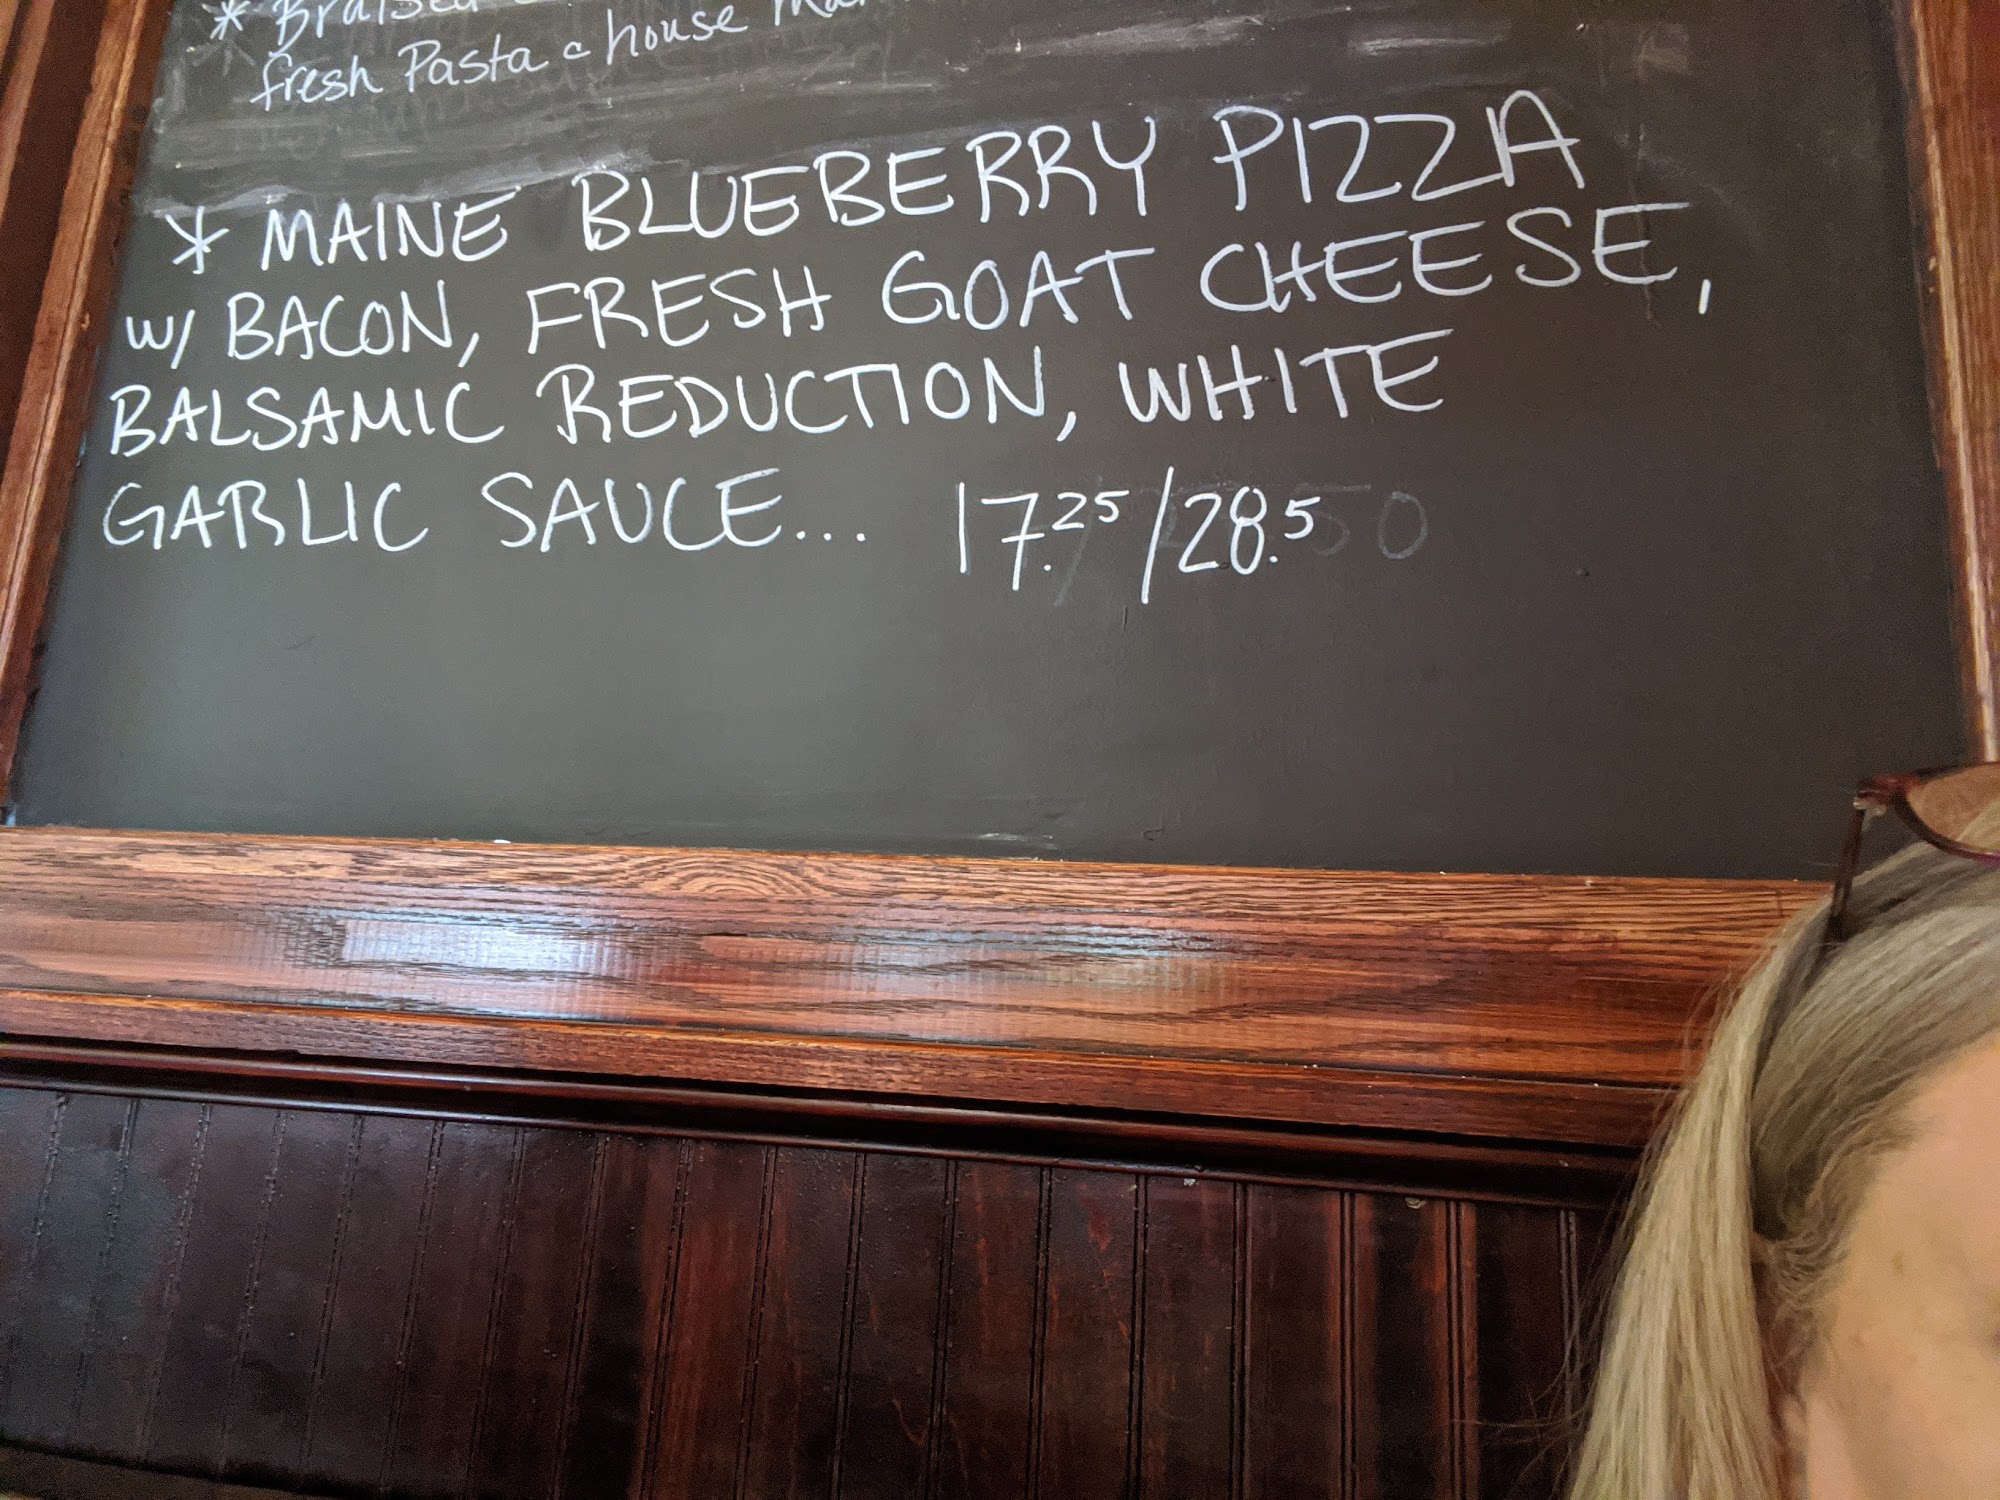 * Braised
fresh Pasta c house
* MAINE BLUEBERRY PIZZA
w/ BACON, FRESH GOAT CHEESE,
BALSAMIC REDUCTION, WHITE
GARLIC SAUCE... 17.25/28.5